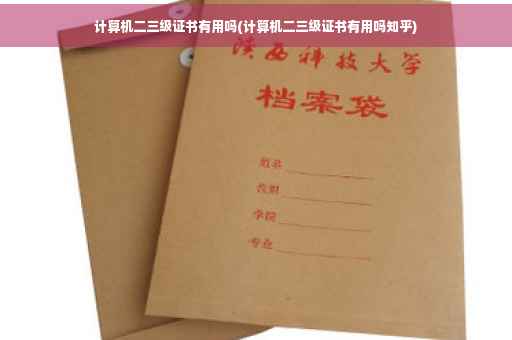 计算机二三级证书有用吗(计算机二三级证书有用吗知乎)
陕西科技大学
档案袋
学院
专业